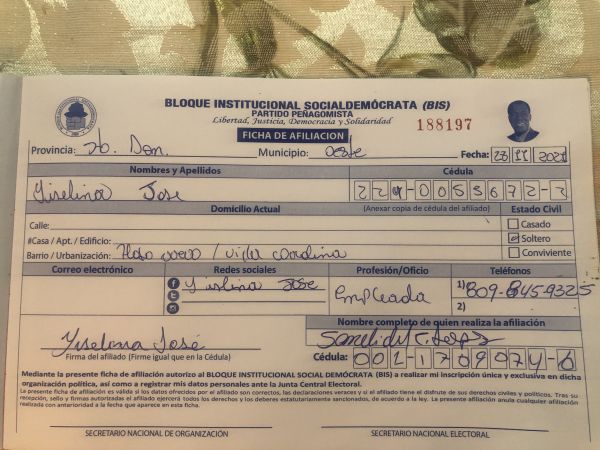 BLOQUE INSTITUCIONAL SOCIALDEMÓCRATA (BIS)
PARTIDO PEÑAGOMISTA
Libertad, Justicia, Democracia y Solidaridad
FICHA DE AFILIACION
188197
Provincia: Sto. Dom. Municipio: oeste Fecha:
Nombres y Apellidos Cédula
Yiselina Jose
Domicilio Actual (Anexar copia de cédula del afiliado) Estado Civil
Calle: Casado
#Casa / Apt. / Edificio: Soltero
Barrio / Urbanización: Hato nuevo / Villa Carolina Conviviente
Correo electrónico Redes sociales Profesión/Oficio Teléfonos
Yiselina Jose Empleada 1) 809-845-9325
2)
Nombre completo de quien realiza la afiliación
Yiselina José
Firma del afiliado (Firme igual que en la Cédula) Cédula: 001-1709074-6
Mediante la presente ficha de afiliación autorizo al BLOQUE INSTITUCIONAL SOCIALDEMÓCRATA (BIS) a realizar mi inscripción única y exclusiva en dicha
organización política, así como a registrar mis datos personales ante la Junta Central Electoral.
La presente ficha de afiliación es válida si los datos ofrecidos por el afiliado son correctos, las declaraciones veraces y si el afiliado tiene el disfrute de sus derechos civiles y políticos. Tras su
recepción, sello y firmas autorizadas el afiliado ejercerá todos los derechos y los deberes estatutariamente sancionados, de acuerdo a la ley. La presente afiliación anula cualquier afiliación
realizada con anterioridad a la fecha que aparece en esta ficha.
SECRETARIO NACIONAL DE ORGANIZACIÓN SECRETARIO NACIONAL ELECTORAL